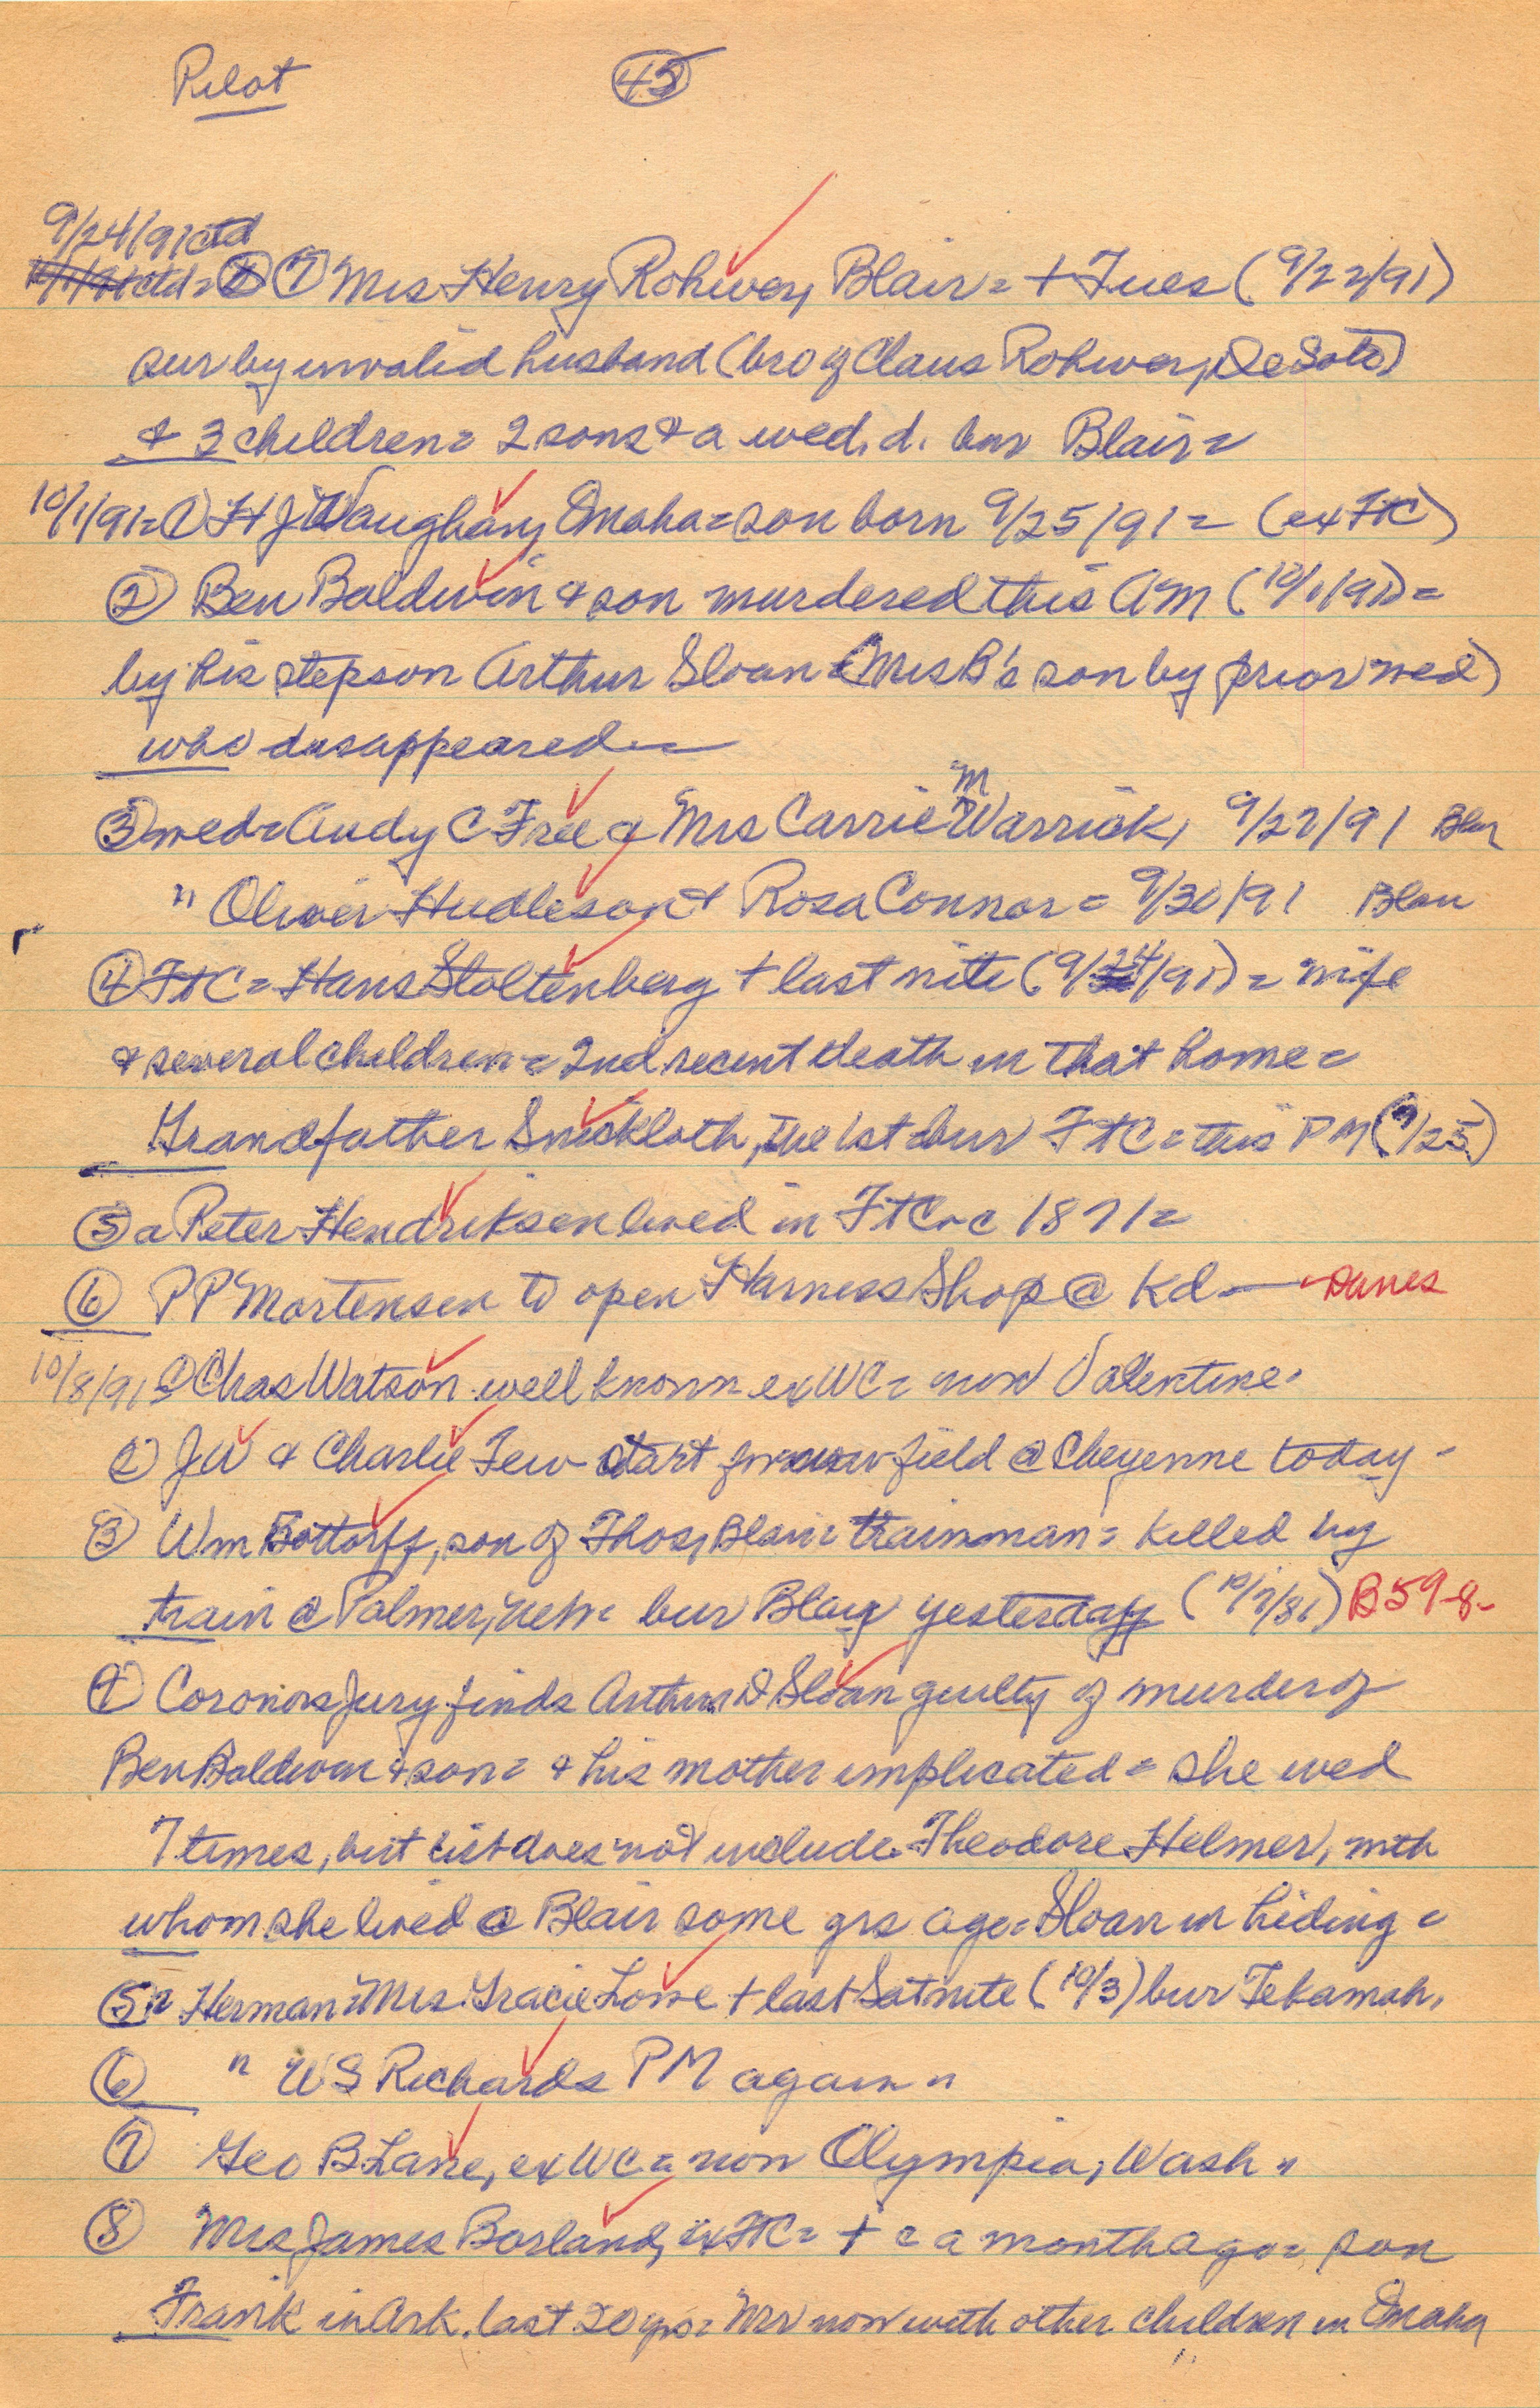 Pilot 45
9/24/91 ctd
10/1/91 ctd = 8 7 Mrs Henry Rohwer, Blair = + Tues (9/22/91)
sur by invalid husband (bro of Claus Rohwer, DeSoto)
& 3 children = 2 sons & a wed. d. bur Blair =
10/1/91 = 1 H J Waughan, Omaha = son born 9/25/91 = (ex FtC)
2 Ben Baldwin & son murdered this AM (10/1/91) =
by his stepson Arthur Sloan (Mrs B's son by prior wed)
who disappeared =
3 wed = Andy C Free & Mrs Carrie M Warrick, 9/27/91 Blair
" Oliver Hudleson & Rosa Connor = 9/30/91 Blair
4 FtC = Hans Stoltenberg + last nite (9/24/91) = wife
& several children = 2nd recent death in that home =
Grandfather Sneckloth, the 1st = bur FtC = this PM (9/25)
5 a Peter Hendriksen lived in FtC = c 1871 =
6 PP Mortensen to open Harness Shop @ Kd — Danes
10/8/91 = 1 Chas Watson well known ex WC = now Valentine.
2 JW & Charlie Few start for new field @ Cheyenne today -
3 Wm Bottorff, son of Thos, Blair = trainman = killed by
train @ Palmer, Neb = bur Blair yesterday (10/7/81) B59-8-
4 Coronors Jury finds Arthur D Sloan guilty of murder of
Ben Baldwin & son = & his mother implicated = she wed
7 times, but list does not include Theodore Helmer, with
whom she lived @ Blair some yrs ago = Sloan in hiding =
5 = Herman = Mrs. Gracie Lowe + last Sat nite (10/3) bur Tekamah.
6 " WS Richards PM again =
7 Geo B Lane, ex WC = now Olympia, Wash =
8 Mrs James Borland, ex FtC = + c a month ago = son
Frank in Ark. last 20 yrs = Mr now with other children in Omaha